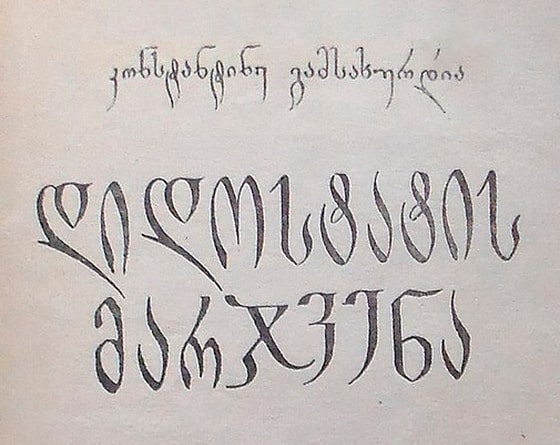 კონსტანტინე გამსახურდია
დიდოსტატის
მარჯვენა